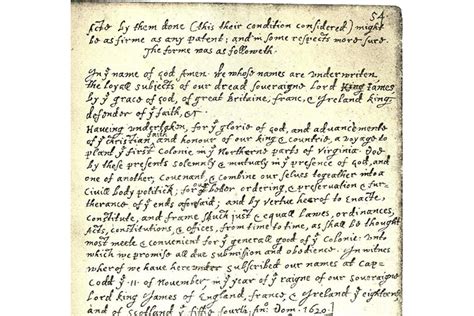 54
Acte by them done (this their condition considered) might
be as firme as any patent; and in some respects more sure.
The forme was as followeth.
In yͤ name of God Amen. We whose names are underwriten,
the loyall subjects of our dread soveraigne Lord King James,
by yͤ grace of God, of great Britaine, franc, & Ireland king,
defender of yͤ faith, &c
Haveing undertaken, for yͤ glorie of God, and advancemente
of yͤ christian faith and honour of our king & countrie, a voyage to
plant yͤ first Colonie in yͤ Northerne parts of Virginia. Doe
by these presents solemnly & mutualy in yͤ presence of God, and
one of another, Covenant, & combine our selves togeather into a
Civill body politick; for yͤ better ordering, & preservation & fur=
therance of yͤ ends aforsaid; and by vertue hearof to Enacte,
constitute, and frame shuch just & equall Lawes, ordinances,
Acts, constitutions, & offices, from time to time, as shall be thought
most meete & convenient for yͤ generall good of yͤ Colonie: unto
which we promise all due submission and obedience. In witnes
wherof we have hereunder subscribed our names at Cap=
Codd yͤ .11. of November, in yͤ year of yͤ raigne of our soveraigne
Lord king James of England, france, & Ireland yͤ eighteenth
and of Scotland yͤ fiftie fourth. An: Dom. 1620.